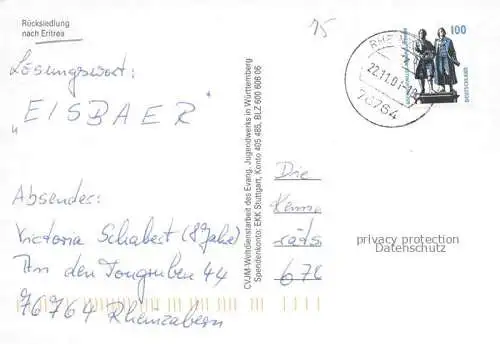 Rücksiedlung
nach Eritrea
15
Lösungswort:
"EISBAER"
Absender:
Victoria Schabest (8 Jahre)
An den Tongruben 44
76764 Rheinzabern
CVJM-Weltdienstarbeit des Evang. Jugendwerks in Württemberg
Spendenkonto: EKK Stuttgart, Konto 405 485, BLZ 600 606 06
22.11.01-18
76764
100
DEUTSCHLAND
Die
Kenne
räts
privacy protection
Datenschutz